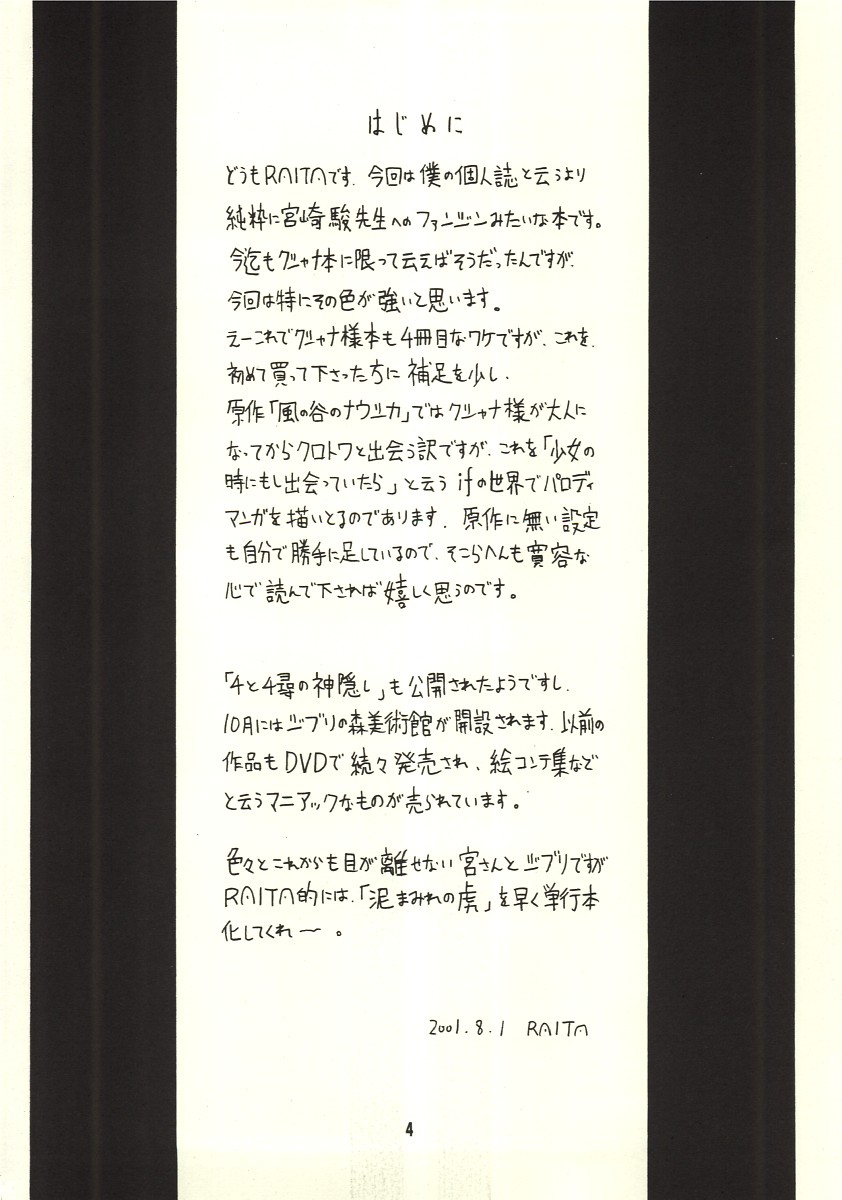 はじめに
どうもRAITAです. 今回は僕の個人誌と云うより
純粋に宮崎駿先生へのファンジンみたいな本です。
今迄もクシャナ本に限って云えばそうだったんですが.
今回は特にその色が強いと思います。
えーこれでクシャナ様本も4冊目なワケですが、これを.
初めて買って下さった方に補足を少し.
原作「風の谷のナウシカ」ではクシャナ様が大人に
なってからクロトワと出会う訳ですが、これを「少女の
時にもし出会っていたら」と云うifの世界でパロディ
マンガを描いとるのであります. 原作に無い設定
も自分で勝手に足しているので、そこらへんも寛容な
心で読んで下されば嬉しく思うのです。
「4と4尋の神隠し」も公開されたようですし.
10月にはジブリの森美術館が開設されます. 以前の
作品もDVDで続々発売され、絵コンテ集など
と云うマニアックなものが売られています。
色々とこれからも目が離せない宮さんとジブリですが
RAITA的には、「泥まみれの虎」を早く単行本
化してくれ〜。
2001.8.1 RAITA
4